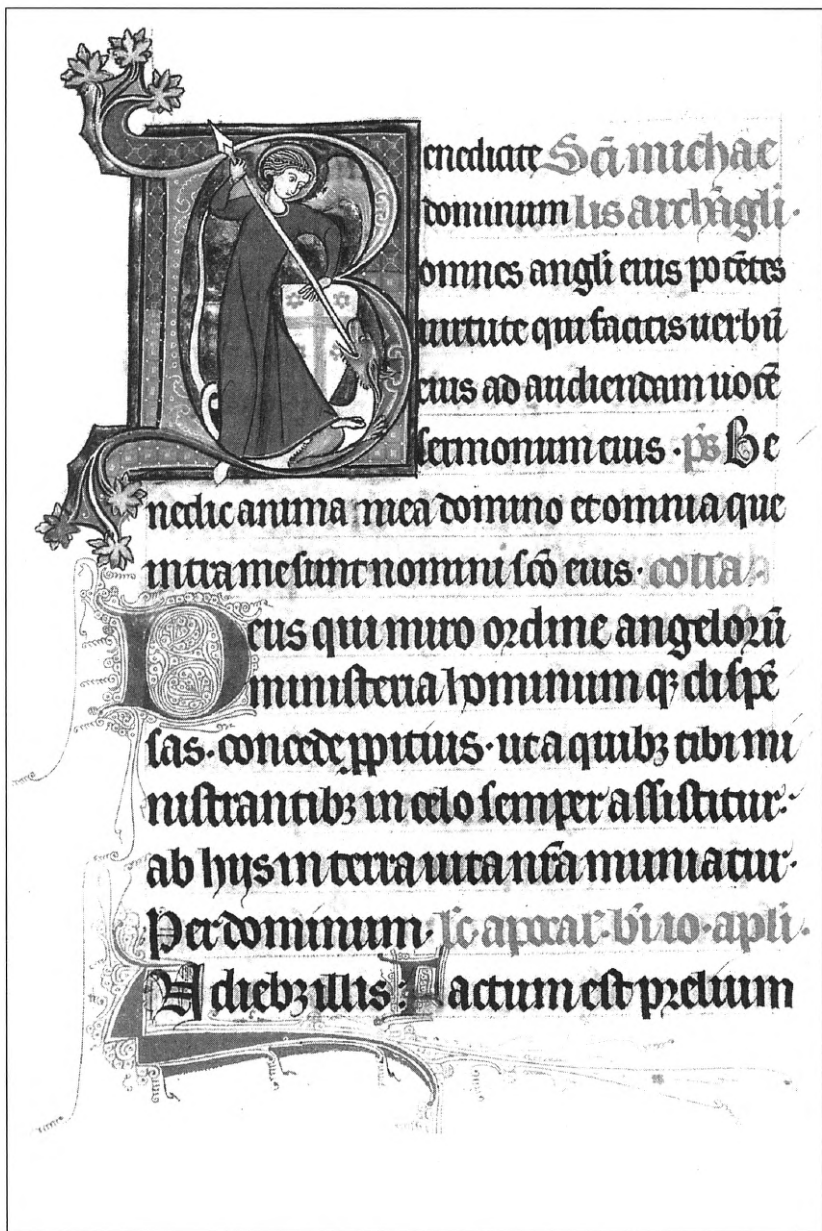 Benedicite Scī michae
dominum lis archāgli.
omnes angli eius potētes
uirtute qui facitis uerbū
eius ad audiendam uocē
sermonum eius. p̄s Be
nedic anima mea domino et omnia que
intra me sunt nomini scō eius. coll̄a
Deus qui miro ordine angelorū
ministeria hominum qꝫ dispē
sas. concede ꝓpitius. ut a quibꝫ tibi mi
nistrantibꝫ in celo semper assistitur.
ab hijs in terra uita nr̄a muniatur.
Per dominum. lc̄ apocal. bi io. apli.
In diebꝫ illis: Factum est prelium